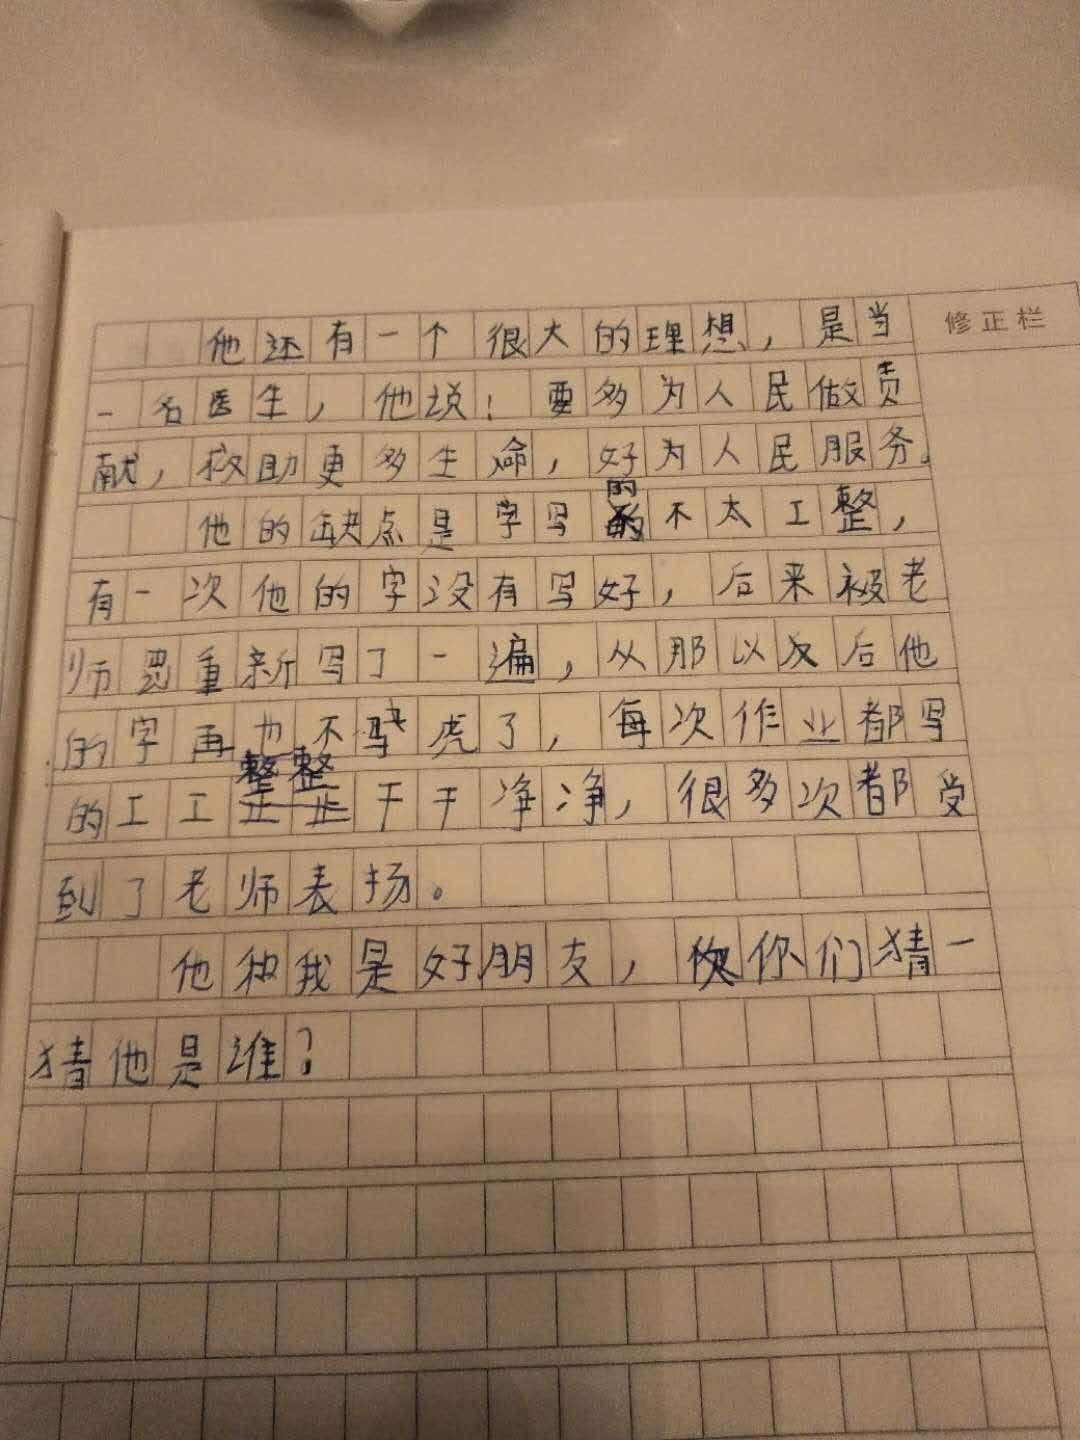 修正栏
他还有一个很大的理想，是当
一名医生，他说！要多为人民做贡
献，救助更多生命，好为人民服务。
他的缺点是字写的不太工整，
有一次他的字没有写好，后来被老
师 重新写了一遍，从那以后他
的字再也不 虎了，每次作业都写
的工工整整干干净净，很多次都受
到了老师表扬。
他和我是好朋友，你们猜一
猜他是谁？